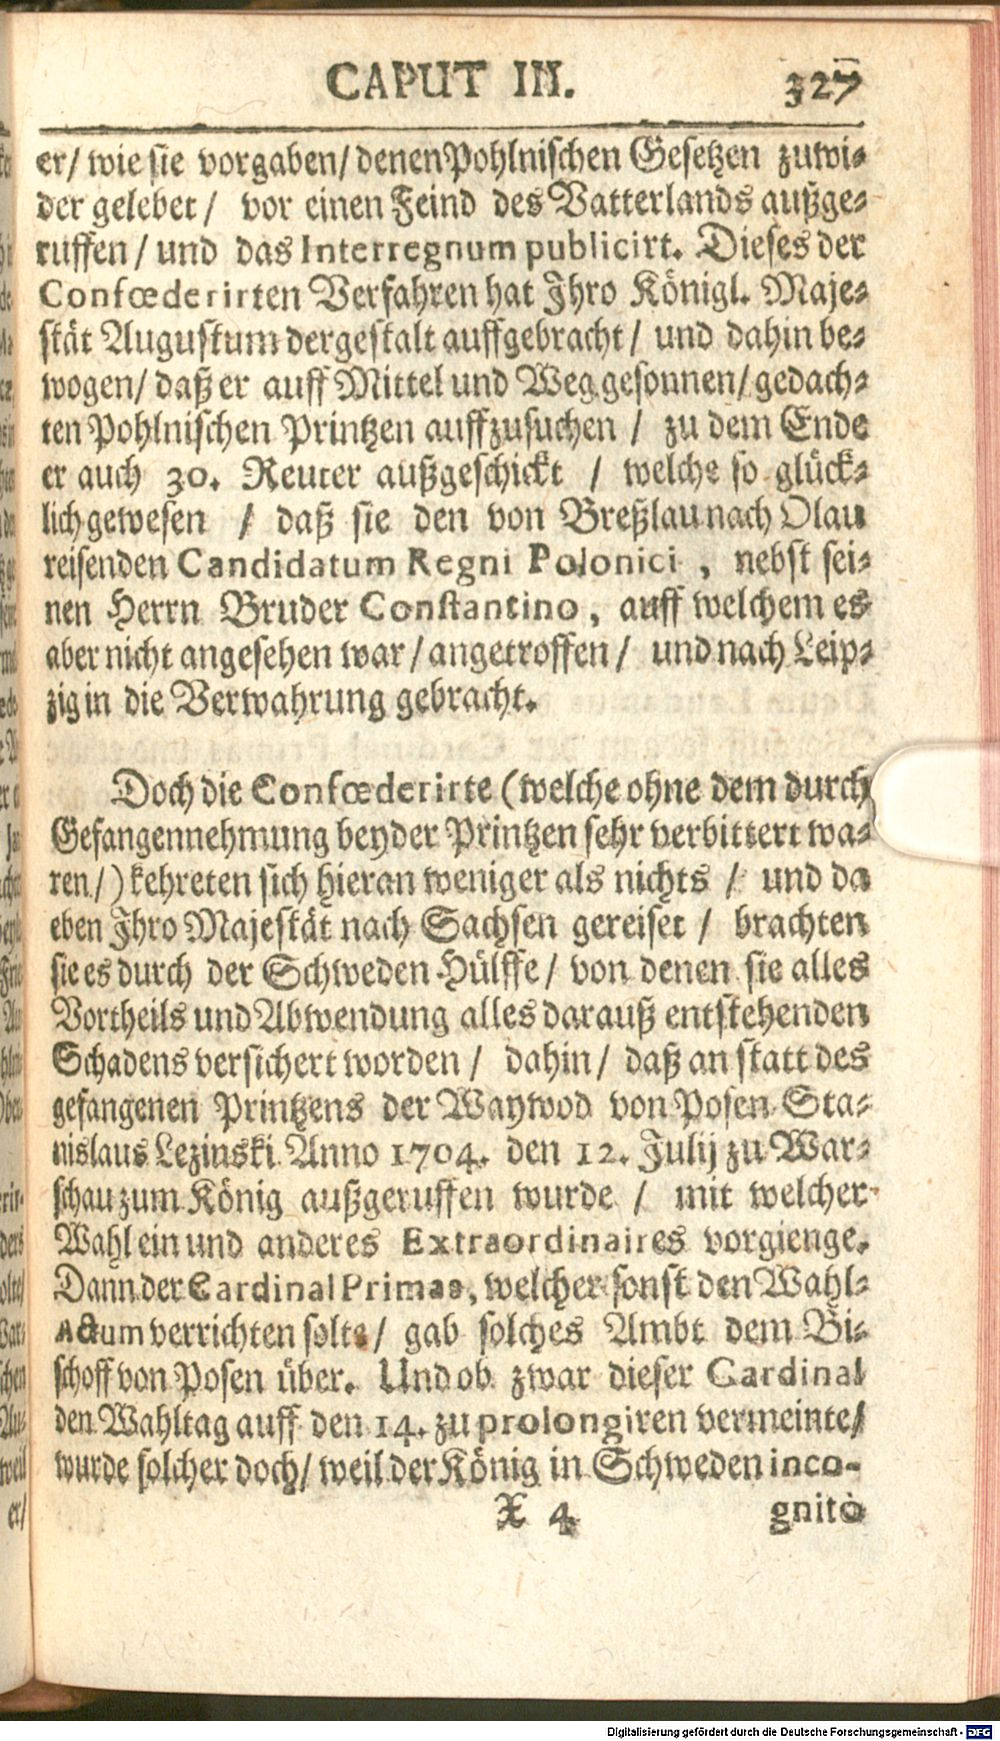 CAPUT III. 327
er/ wie sie vorgaben/ denen Pohlnischen Gesetzen zuwi-
der gelebet/ vor einen Feind des Vatterlands außge-
ruffen/ und das Interregnum publicirt. Dieses der
Confœderirten Verfahren hat Ihro Königl. Maje-
stät Augustum dergestalt auffgebracht/ und dahin be-
wogen/ daß er auff Mittel und Weg gesonnen/ gedach-
ten Pohlnischen Printzen auffzusuchen/ zu dem Ende
er auch 30. Reuter außgeschickt / welche so glück-
lich gewesen / daß sie den von Breßlau nach Olau
reisenden Candidatum Regni Polonici, nebst sei-
nen Herrn Bruder Constantino, auff welchem es
aber nicht angesehen war/ angetroffen/ und nach Leip-
zig in die Verwahrung gebracht.
Doch die Confœderirte (welche ohne dem durch
Gefangennehmung beyder Printzen sehr verbittert wa-
ren/) kehreten sich hieran weniger als nichts / und da
eben Ihro Majestät nach Sachsen gereiset / brachten
sie es durch der Schweden Hülffe/ von denen sie alles
Vortheils und Abwendung alles darauß entstehenden
Schadens versichert worden/ dahin/ daß an statt des
gefangenen Printzens der Waywod von Posen Sta-
nislaus Lezinski Anno 1704. den 12. Julij zu War-
schau zum König außgeruffen wurde / mit welcher
Wahl ein und anderes Extraordinaires vorgienge.
Dann der Cardinal Primas, welcher sonst den Wahl-
Actum verrichten solte/ gab solches Ambt dem Bi-
schoff von Posen über. Und ob zwar dieser Cardinal
den Wahltag auff den 14. zu prolongiren vermeinte/
wurde solcher doch/ weil der König in Schweden inco-
X 4 gnitò
Digitalisierung gefördert durch die Deutsche Forschungsgemeinschaft - DFG